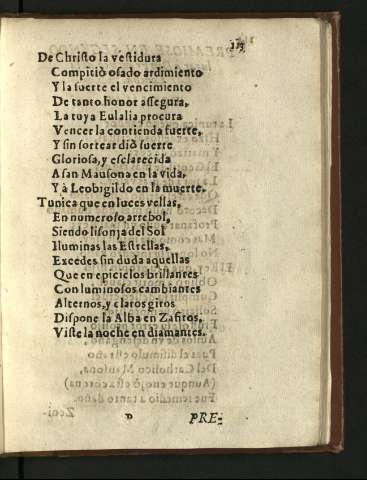 De Christo la vestidura
Compitiò osado ardimiento
Y la suerte el vencimiento
De tanto honor assegura,
La tuya Eulalia procura
Vencer la contienda fuerte,
Y sin sortear diò suerte
Gloriosa, y esclarecida
A san Mausona en la vida,
Y à Leobigildo en la muerte.
Tunica que en luces vellas,
En numeroso arrebol,
Siendo lisonja del Sol
Iluminas las Estrellas,
Excedes sin duda aquellas
Que en epiciclos brillantes
Con luminosos cambiantes
Alternos, y claros giros
Dispone la Alba en Zafiros,
Viste la noche en diamantes.
P PRE-